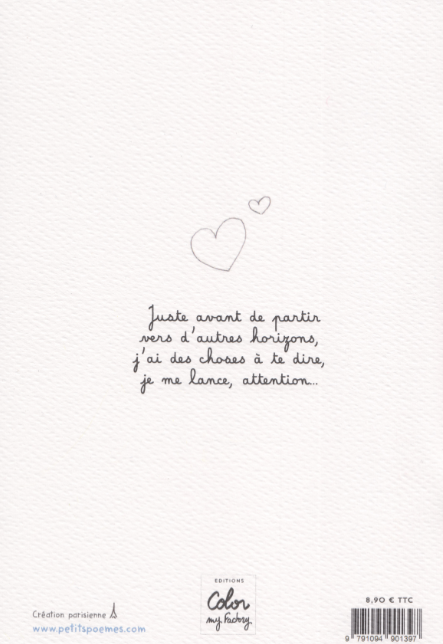 Juste avant de partir
vers d'autres horizons,
j'ai des choses à te dire,
je me lance, attention...
EDITIONS
Color
my Factory
8,90 € TTC
Création parisienne
www.petitspoemes.com
9 791094 901397